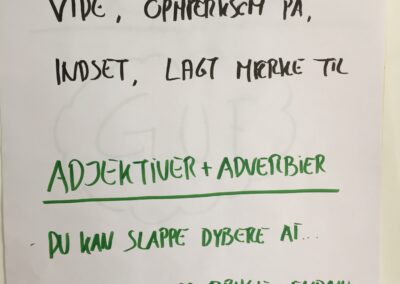 VIDE, OPMÆRKSOM PÅ,
INDSET, LAGT MÆRKE TIL
ADJEKTIVER + ADVERBIER
- DU KAN SLAPPE DYBERE AF...